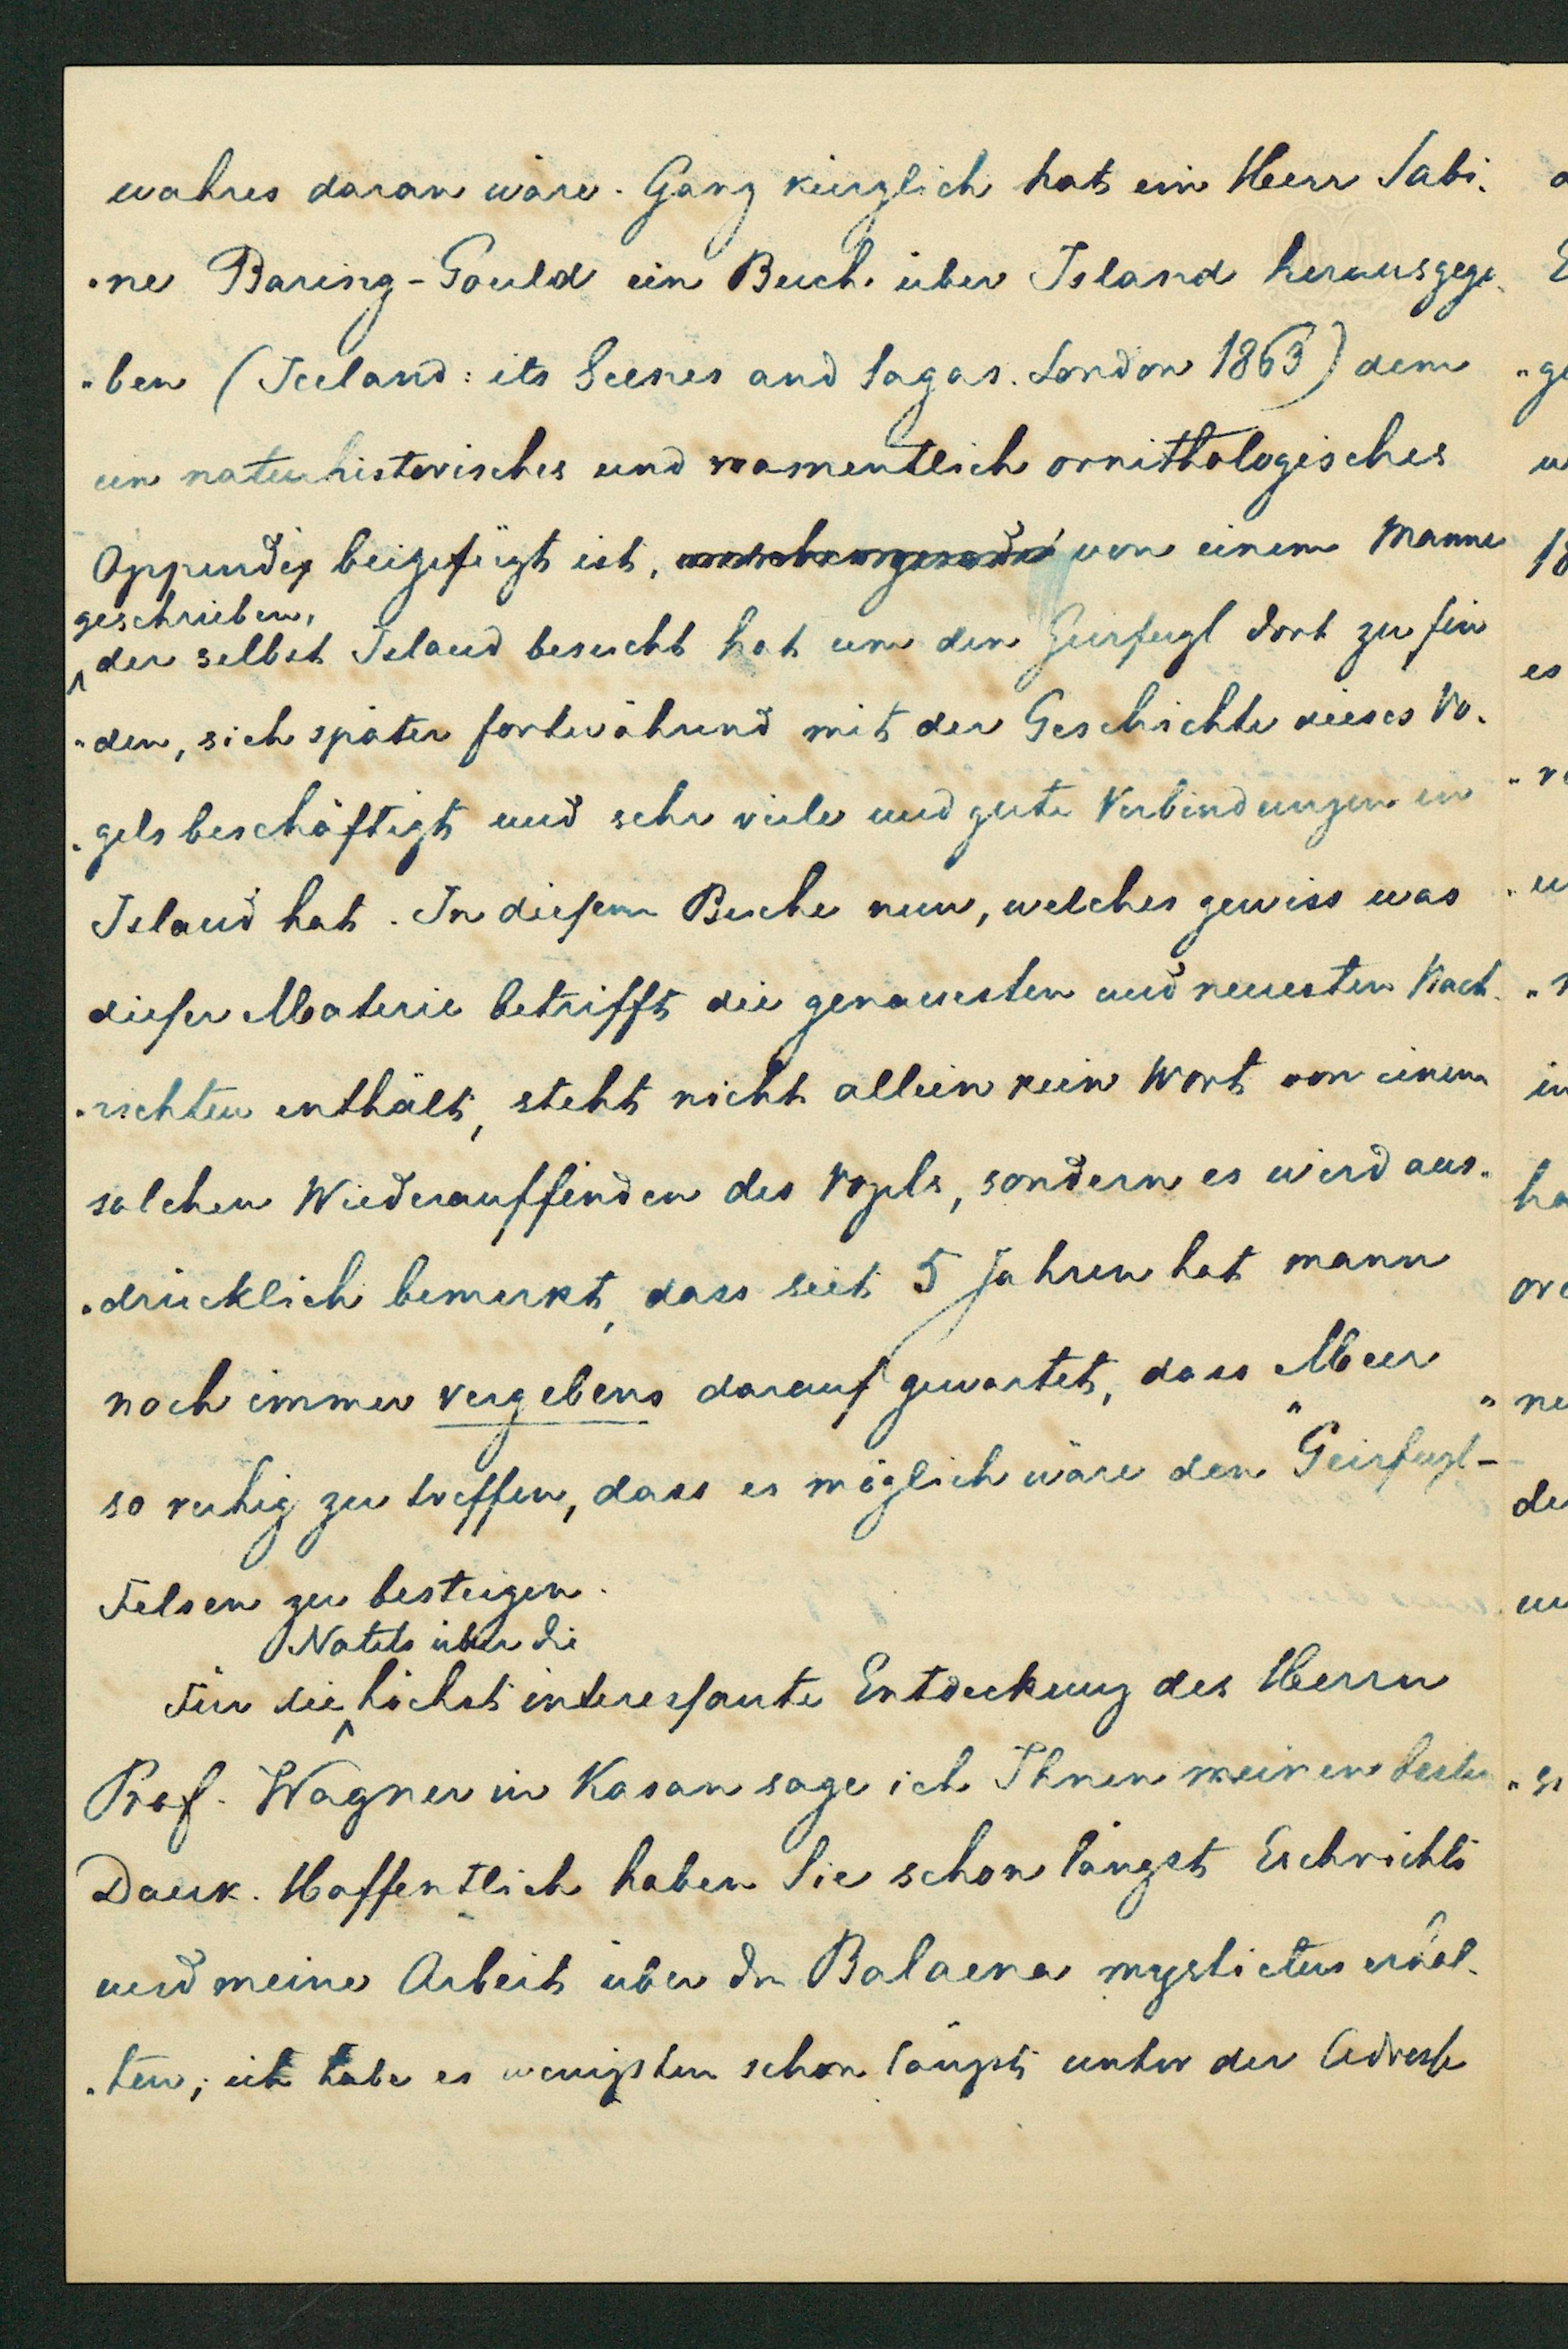 wahres daran wäre. Ganz kürzlich hat ein Herr Sabi-
-ne Baring-Gould ein Buch über Island herausgege-
-ben (Iceland: its Scenes and Sagas. London 1863) dem
ein naturhistorisches und namentlich ornithologisches
Appendix beigefügt ist, von einem Manne
geschrieben,
der selbst Island besucht hat um den Geirfugl dort zu fin
-den, sich später fortwährend mit der Geschichte dieses Vo-
-gels beschäftigt und sehr viele und gute Verbindungen in
Island hat. In diesem Buche nun, welches gewiss was
dieser Materie betrifft die genauesten und neuesten Nach-
-richten enthält, steht nicht allein kein Wort von einem
solchen Wiederauffinden des Vogels, sondern es wird aus-
-drücklich bemerkt, dass seit 5 Jahren hat mann
noch immer vergebens darauf gewartet, dass Meer
so ruhig zu treffen, dass es möglich wäre den "Geirfugl-"
Felsen zu besteigen.
Notits über die
Für die höchst interessante Entdeckung des Herrn
Prof. Wagner in Kasan sage ich Ihnen meinen besten
Dank. Hoffentlich haben Sie schon längst Eschrichts
und meine Arbeit über den Balaena mysticetus erhal-
-ten; ich habe es wenigsten schon längst unter der Adresse